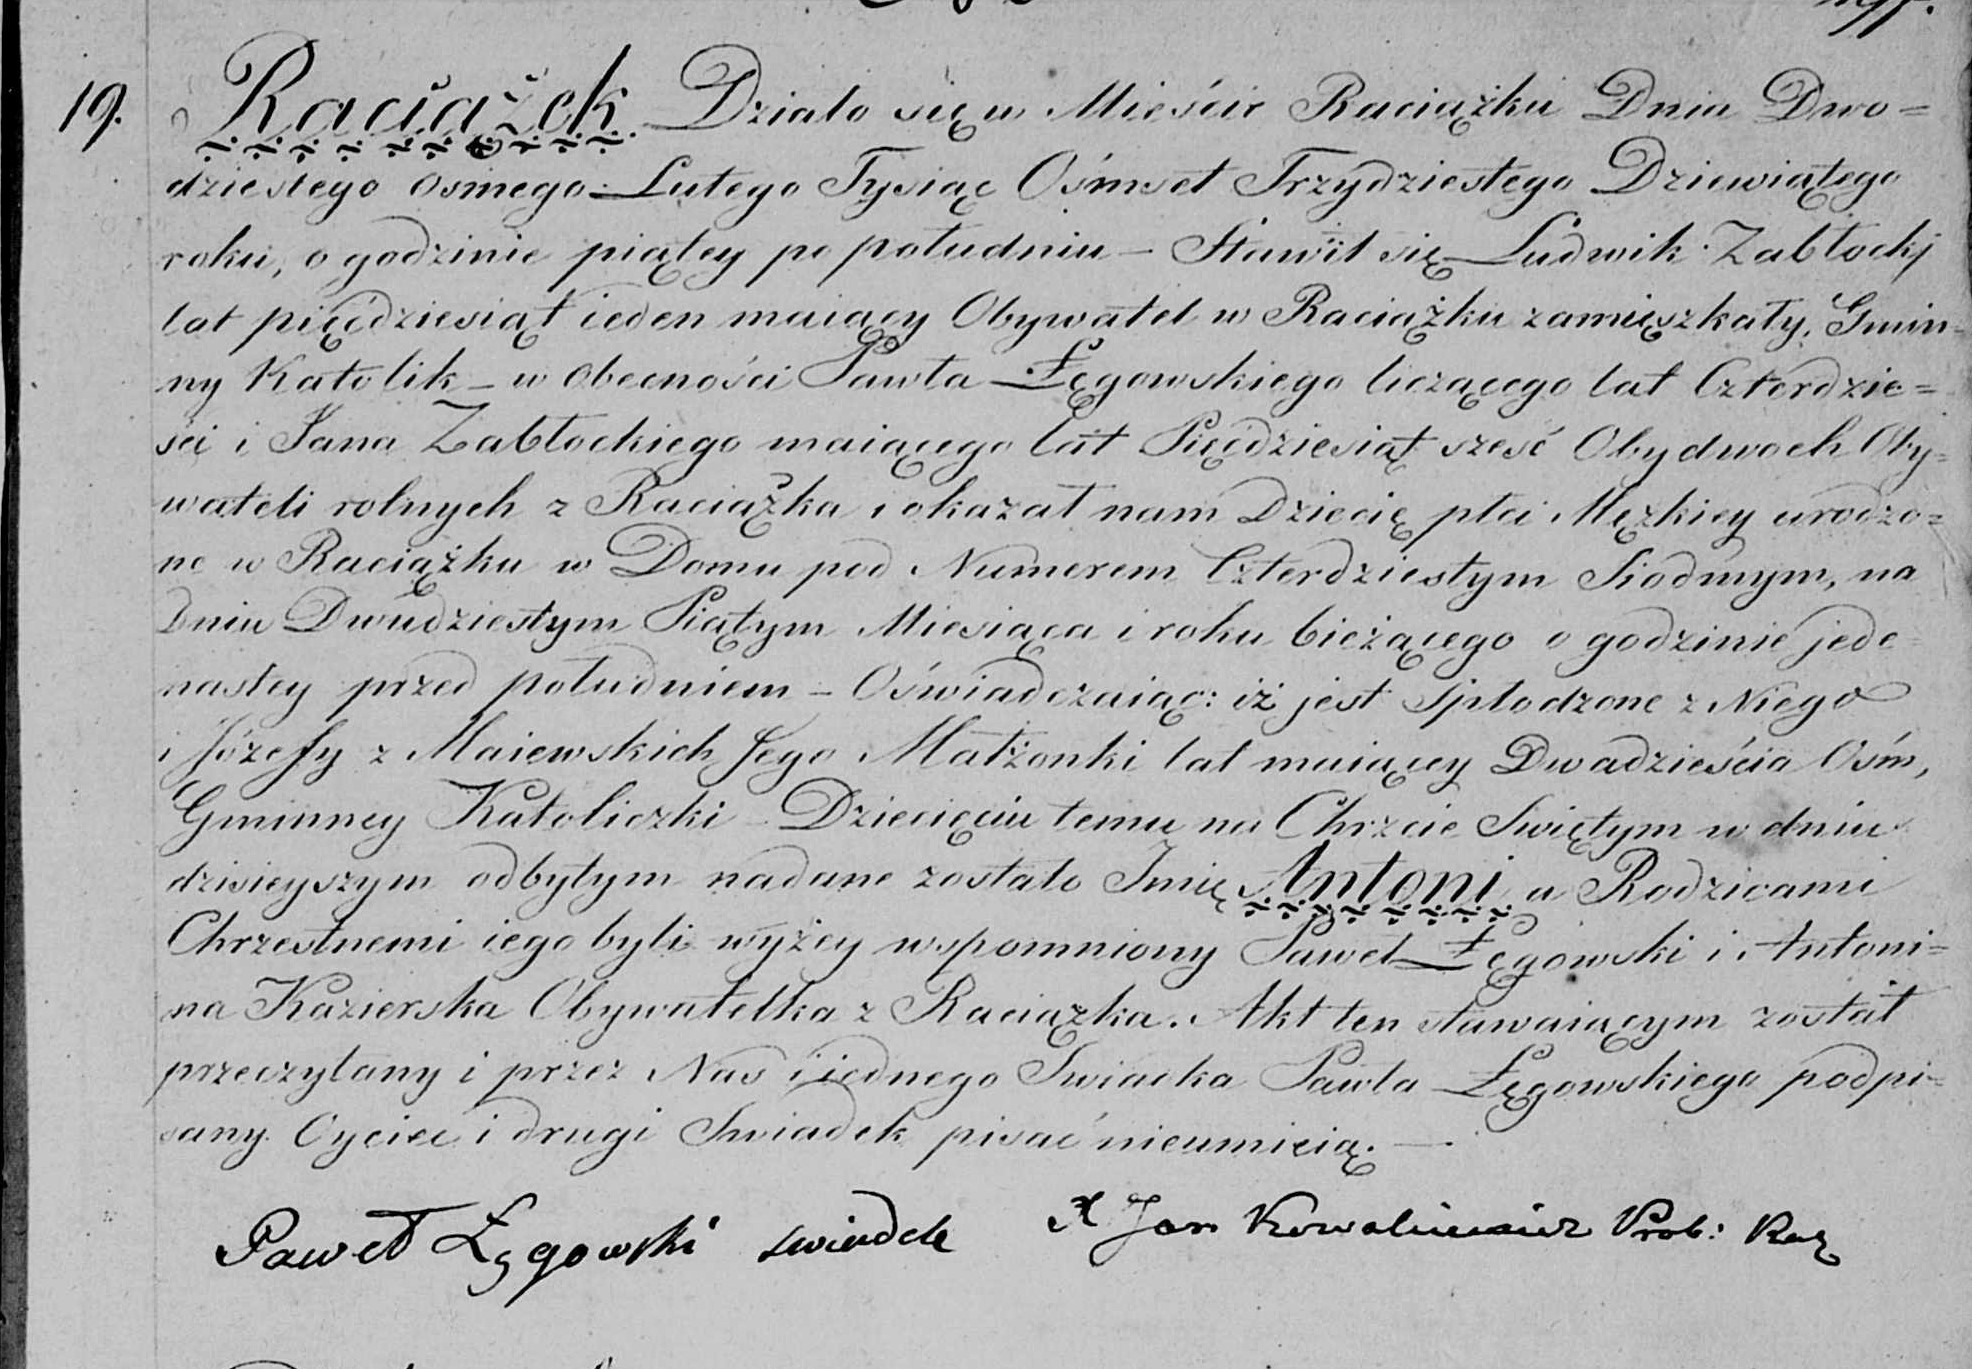 19.
Raciążek Działo się w Mieście Raciążku Dnia Dwu=
dziestego osmego Lutego Tysiąc Ośmset Trzydziestego Dziewiątego
roku, o godzinie piątey po południu – Stawił się Ludwik Zabłockj
lat pięćdziesiąt ieden maiący Obywatel w Raciążku zamieszkały, Gmin=
ny Katolik – w obecności Pawła Łęgowskiego liczącego lat Czterdzie=
ści i Jana Zabłockiego maiącego lat Pięćdziesiąt sześć Obydwoch Oby=
wateli rolnych z Raciążka i okazał nam Dziecię płci Męzkiey urodzo=
ne w Raciążku w Domu pod Numerem Czterdziestym Siodmym, na
Dniu Dwudziestym Piątym Miesiąca i roku bieżącego o godzinie jede=
nastey przed południem – Oświadczaiąc: iż jest Spłodzone z Niego
i Józefy z Maiewskich Jego Małżonki lat maiącey Dwadzieścia Ośm,
Gminney Katoliczki – Dziecięciu temu na Chrzcie Swiętym w dniu
dzisieyszym odbytym nadane zostało Imię Antoni a Rodzicami
Chrzestnemi iego byli wyżey wspomniony Paweł Łęgowski i Antoni=
na Kazierska Obywatelka z Raciązka. Akt ten stawaiącym został
przeczytany i przez Nas i iednego Swiadka Pawła Łęgowskiego podpi=
sany. Oyciec i drugi Swiadek pisać nieumieią. —
Paweł Łęgowski swiadek X Jan Prob: Rac